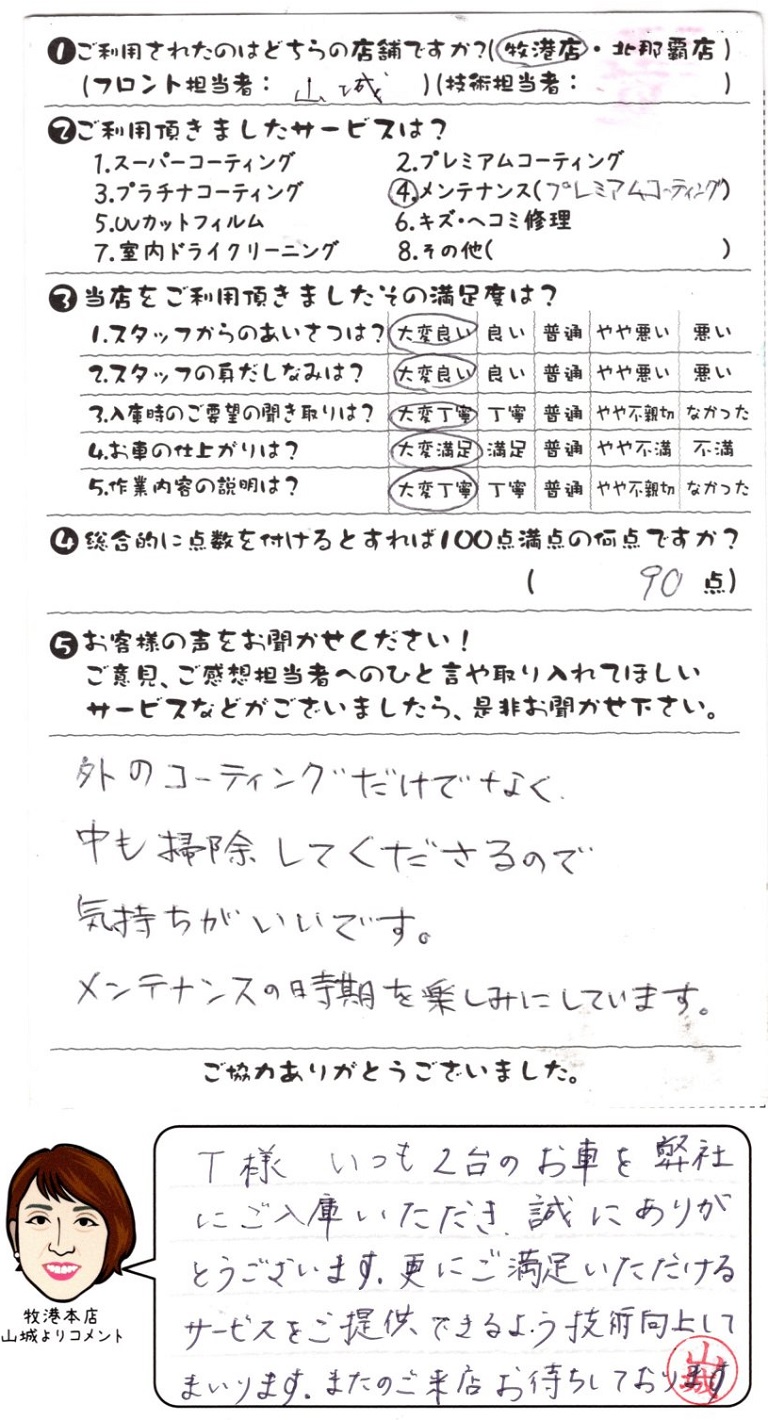 ❶ご利用されたのはどちらの店舗ですか?(牧港店・北那覇店)
(フロント担当者: 山城 )(技術担当者: )
❷ご利用頂きましたサービスは?
1.スーパーコーティング 2.プレミアムコーティング
3.プラチナコーティング 4.メンテナンス(プレミアムコーティング)
5.UVカットフィルム 6.キズ・ヘコミ修理
7.室内ドライクリーニング 8.その他( )
❸当店をご利用頂きましたその満足度は?
1.スタッフからのあいさつは? 大変良い 良い 普通 やや悪い 悪い
2.スタッフの身だしなみは? 大変良い 良い 普通 やや悪い 悪い
3.入庫時のご要望の聞き取りは? 大変丁寧 丁寧 普通 やや不親切 なかった
4.お車の仕上がりは? 大変満足 満足 普通 やや不満 不満
5.作業内容の説明は? 大変丁寧 丁寧 普通 やや不親切 なかった
❹総合的に点数を付けるとすれば100点満点の何点ですか?
( 90 点)
❺お客様の声をお聞かせください!
ご意見、ご感想担当者へのひと言や取り入れてほしい
サービスなどがございましたら、是非お聞かせ下さい。
外のコーティングだけでなく、
中も掃除してくださるので
気持ちがいいです。
メンテナンスの時期を楽しみにしています。
ご協力ありがとうございました。
T様 いつも2台のお車を弊社
にご入庫いただき、誠にありが
とうございます。更にご満足いただける
サービスをご提供できるよう技術向上して
まいります。またのご来店お待ちしております
山城
牧港本店
山城よりコメント